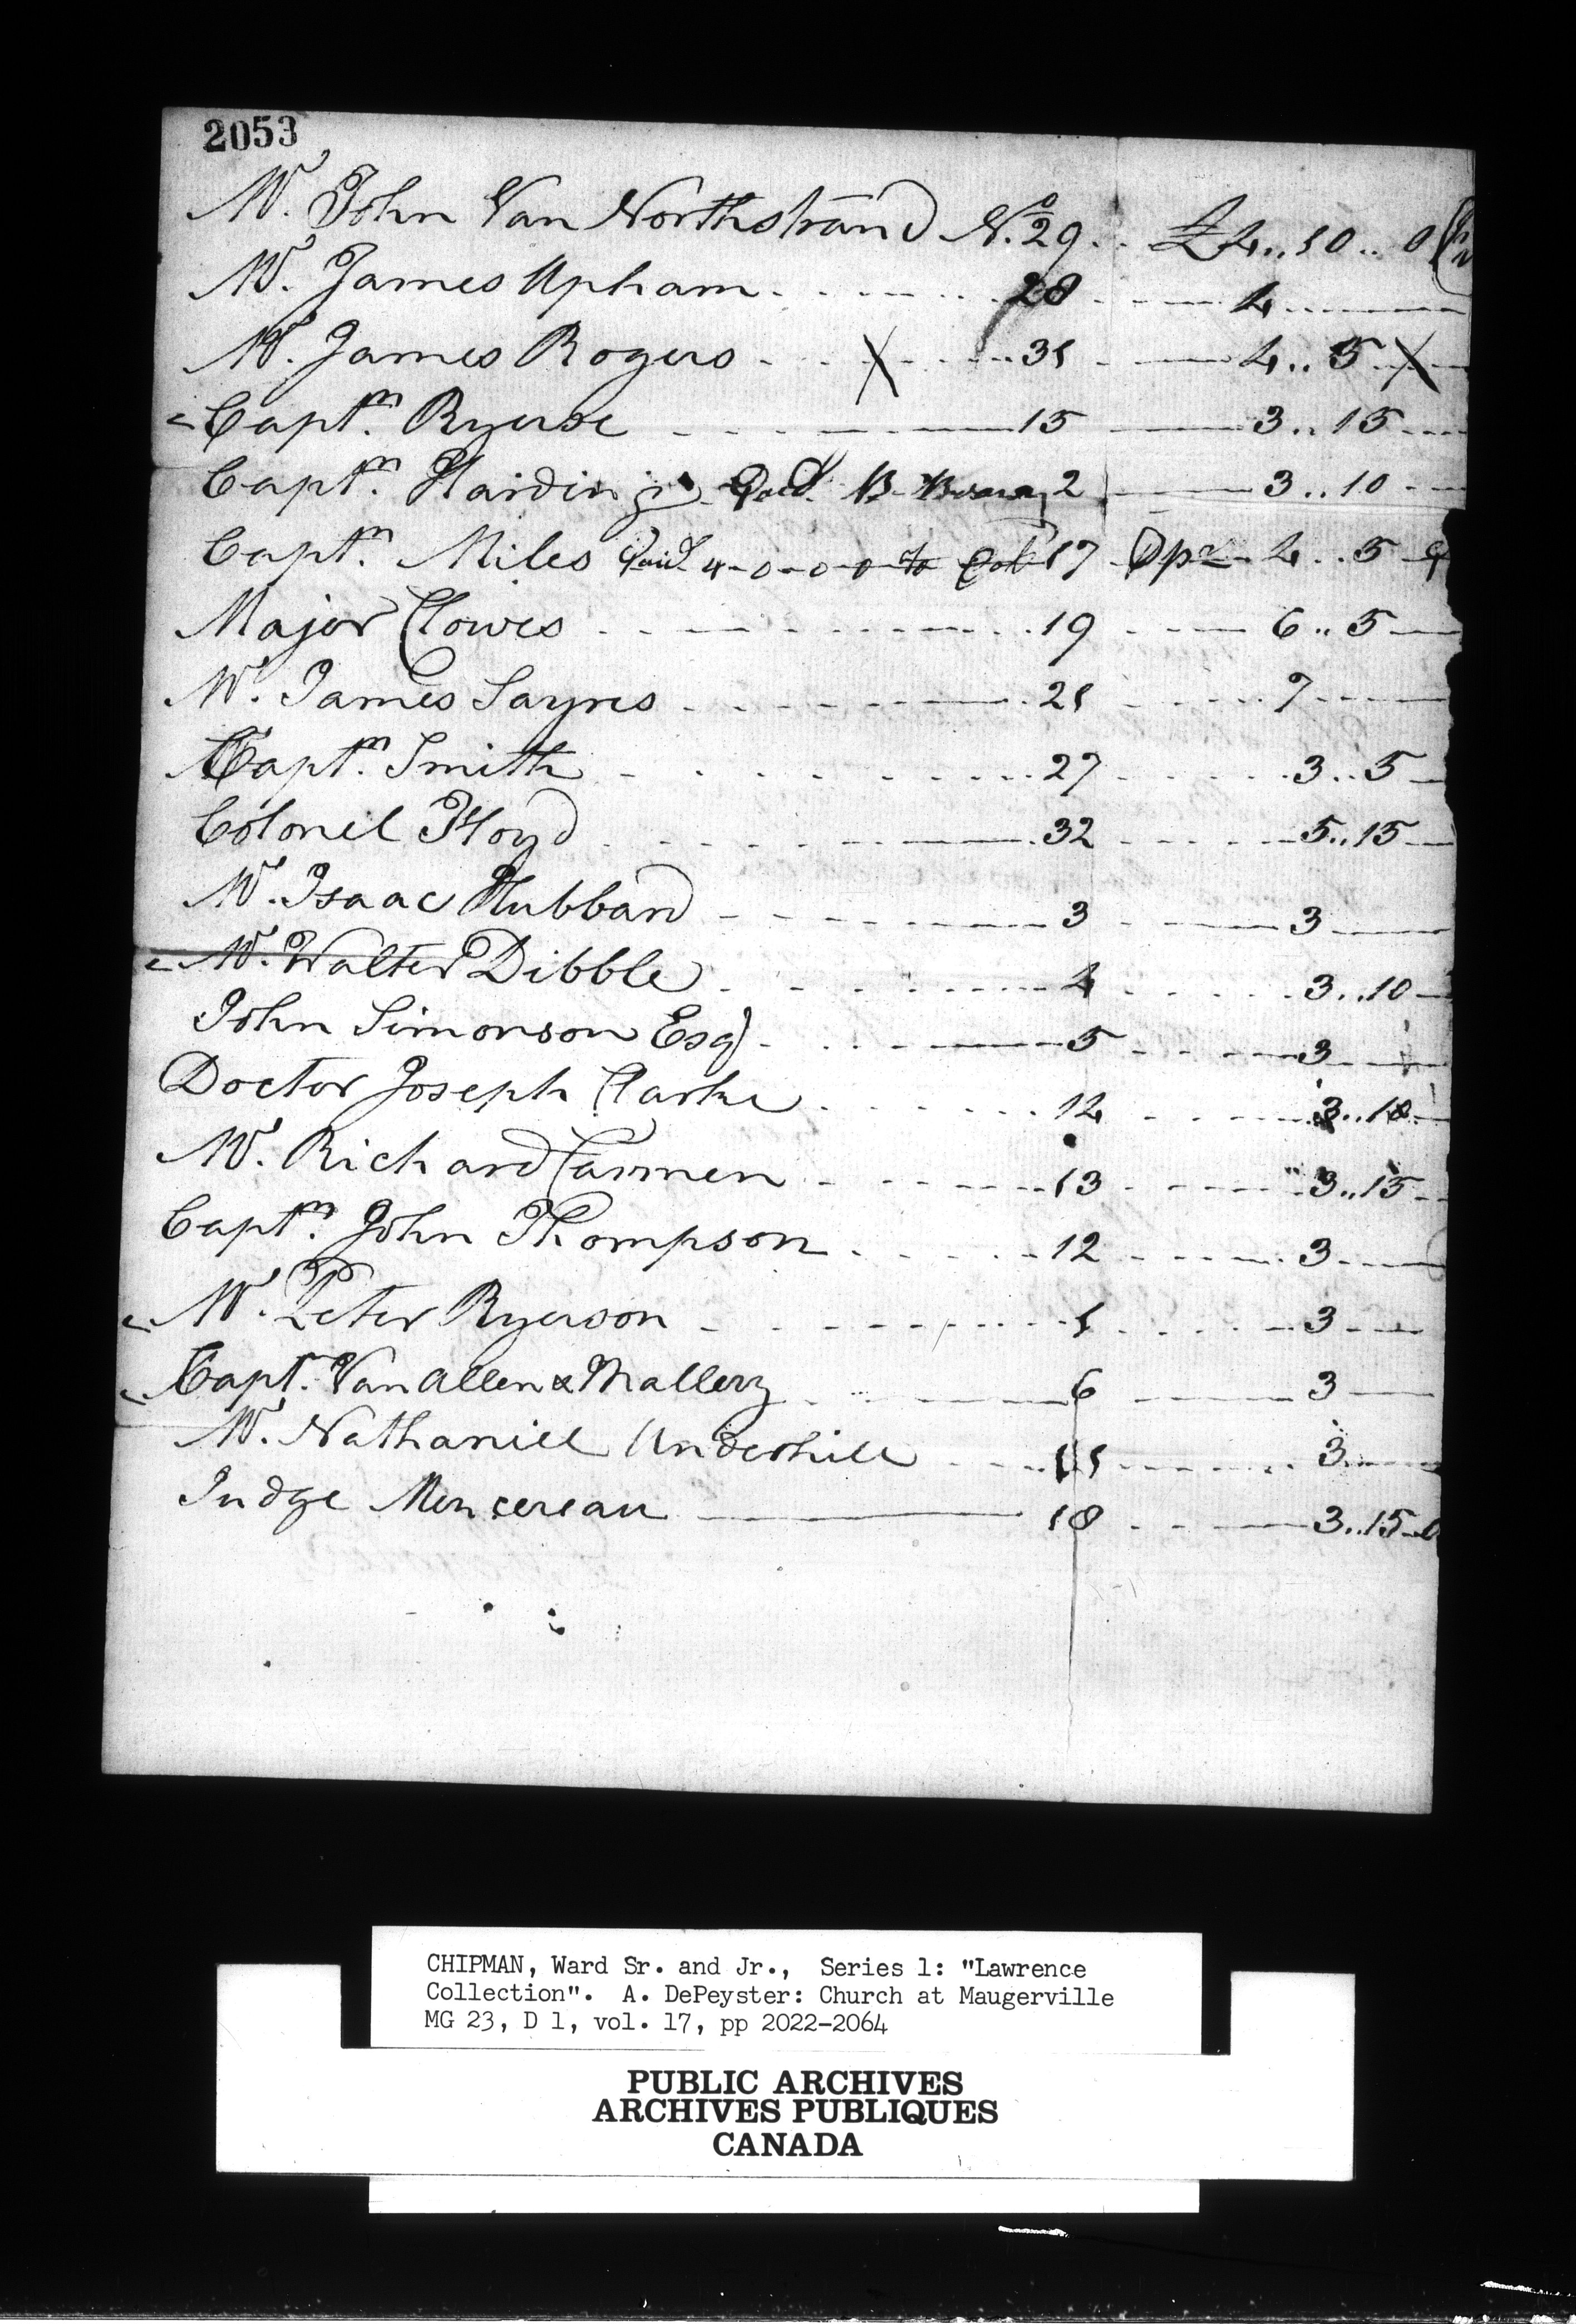 2053
Mr. John Van Northstrand No. 29. . £4..10..0
Mr. James Upham 28 4
Mr. James Rogers X 31 4..5 X
Captm. Ryerse 15 3..15
Captm. Harding Paid B 2 3..10
Captm. Miles Paid 4-0-0 to Col 17 4..5
Major Clowes 19 6..5
Mr. James Sayres 21 7
Captm. Smith 27 3..5
Colonel Floyd 32 5..15
Mr. Isaac Hubbard 3 3
Mr. Walter Dibble 4 3..10
John Simonson Esqr 5 3
Doctor Joseph Clarke 14 3..10
Mr. Richard Carmen 13 3..15
Captm. John Thompson 12 3
Mr. Peter Ryerson 1 3
Capt. Van Allen & Mallery 6 3
Mr. Nathaniel Underhill 11 3
Judge Mersereau 18 3..15..0
CHIPMAN, Ward Sr. and Jr., Series 1: "Lawrence
Collection". A. DePeyster: Church at Maugerville
MG 23, D 1, vol. 17, pp 2022-2064
PUBLIC ARCHIVES
ARCHIVES PUBLIQUES
CANADA